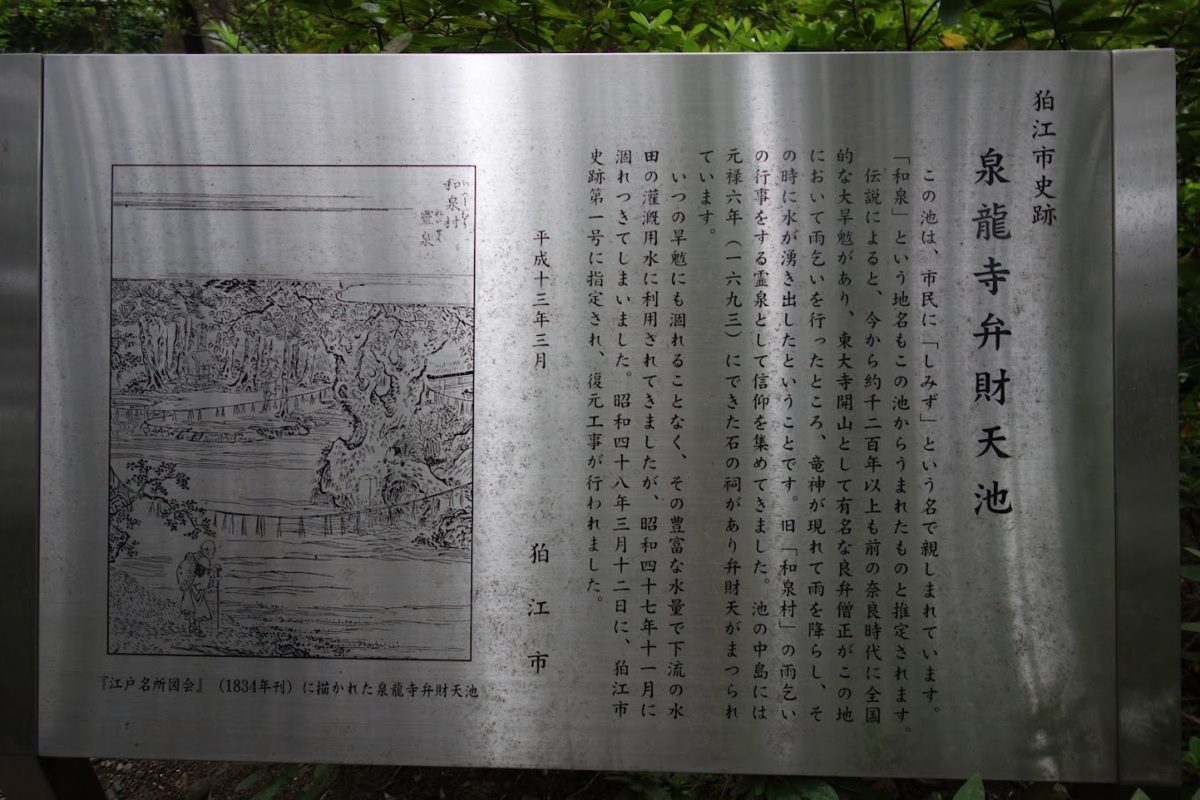 狛江市史跡
泉龍寺弁財天池
この池は、市民に「しみず」という名で親しまれています。
「和泉」という地名もこの池からうまれたものと推定されます。
伝説によると、今から約千二百年以上も前の奈良時代に全国
的な大旱魃があり、東大寺開山として有名な良弁僧正がこの地
において雨乞いを行ったところ、竜神が現れて雨を降らし、そ
の時に水が湧き出したということです。旧「和泉村」の雨乞い
の行事をする霊泉として信仰を集めてきました。池の中島には
元禄六年（一六九三）にできた石の祠があり弁財天がまつられ
ています。
いつの旱魃にも涸れることなく、その豊富な水量で下流の水
田の灌漑用水に利用されてきましたが、昭和四十七年十一月に
涸れつきてしまいました。昭和四十八年三月十二日に、狛江市
史跡第一号に指定され、復元工事が行われました。
平成十三年三月
狛江市
和泉村
霊泉
『江戸名所図会』（1834年刊）に描かれた泉龍寺弁財天池